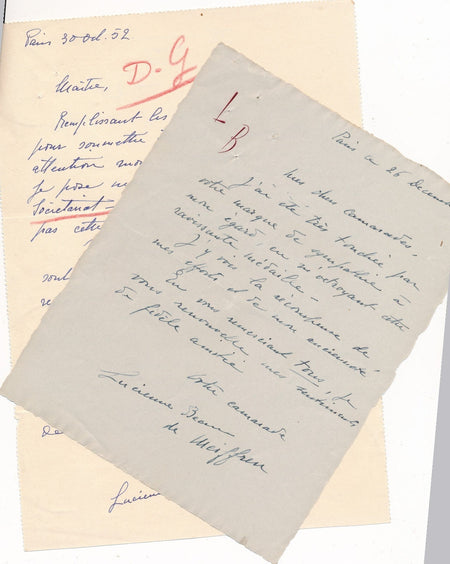 Paris 30 Oct. 52
D-G
Maître,
Remplissant les
pour soumettre
attention mon
Je pose
Secrétariat -
pas cette
de
Lucien
L
B
Paris ce 26 Décemb
Mes chers camarades -
J'ai été très touchée par
votre marque de sympathie à
mon égard, en m'octroyant cette
ravissante médaille -
J'y vois la récompense de
mes efforts et de mon ancienneté
En vous remerciant tous, je
vous renouvelle mes sentiments
de fidèle amitié
Votre camarade
Lucienne
de Meiffren